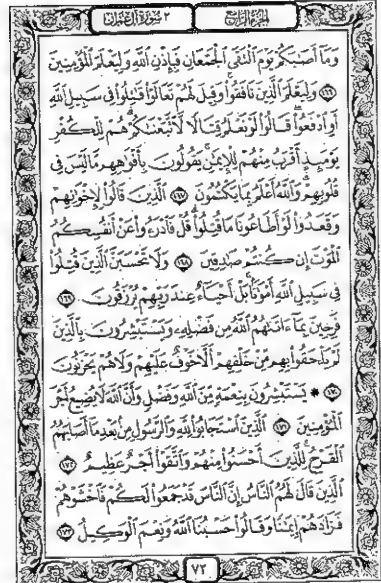 الجزء الرابع ٣ سورة آل عمران
وَمَآ أَصَٰبَكُمْ يَوْمَ ٱلْتَقَى ٱلْجَمْعَانِ فَبِإِذْنِ ٱللَّهِ وَلِيَعْلَمَ ٱلْمُؤْمِنِينَ
١٦٦ وَلِيَعْلَمَ ٱلَّذِينَ نَافَقُوا۟ وَقِيلَ لَهُمْ تَعَالَوْا۟ قَٰتِلُوا۟ فِى سَبِيلِ ٱللَّهِ
أَوِ ٱدْفَعُوا۟ قَالُوا۟ لَوْ نَعْلَمُ قِتَالًا لَّٱتَّبَعْنَٰكُمْ هُمْ لِلْكُفْرِ
يَوْمَئِذٍ أَقْرَبُ مِنْهُمْ لِلْإِيمَٰنِ يَقُولُونَ بِأَفْوَٰهِهِم مَّا لَيْسَ فِى
قُلُوبِهِمْ وَٱللَّهُ أَعْلَمُ بِمَا يَكْتُمُونَ ١٦٧ ٱلَّذِينَ قَالُوا۟ لِإِخْوَٰنِهِمْ
وَقَعَدُوا۟ لَوْ أَطَاعُونَا مَا قُتِلُوا۟ قُلْ فَٱدْرَءُوا۟ عَنْ أَنفُسِكُمُ
ٱلْمَوْتَ إِن كُنتُمْ صَٰدِقِينَ ١٦٨ وَلَا تَحْسَبَنَّ ٱلَّذِينَ قُتِلُوا۟
فِى سَبِيلِ ٱللَّهِ أَمْوَٰتًۢا بَلْ أَحْيَآءٌ عِندَ رَبِّهِمْ يُرْزَقُونَ ١٦٩
فَرِحِينَ بِمَآ ءَاتَىٰهُمُ ٱللَّهُ مِن فَضْلِهِۦ وَيَسْتَبْشِرُونَ بِٱلَّذِينَ
لَمْ يَلْحَقُوا۟ بِهِم مِّنْ خَلْفِهِمْ أَلَّا خَوْفٌ عَلَيْهِمْ وَلَا هُمْ يَحْزَنُونَ
١٧٠ * يَسْتَبْشِرُونَ بِنِعْمَةٍ مِّنَ ٱللَّهِ وَفَضْلٍ وَأَنَّ ٱللَّهَ لَا يُضِيعُ أَجْرَ
ٱلْمُؤْمِنِينَ ١٧١ ٱلَّذِينَ ٱسْتَجَابُوا۟ لِلَّهِ وَٱلرَّسُولِ مِنۢ بَعْدِ مَآ أَصَابَهُمُ
ٱلْقَرْحُ لِلَّذِينَ أَحْسَنُوا۟ مِنْهُمْ وَٱتَّقَوْا۟ أَجْرٌ عَظِيمٌ ١٧٢
ٱلَّذِينَ قَالَ لَهُمُ ٱلنَّاسُ إِنَّ ٱلنَّاسَ قَدْ جَمَعُوا۟ لَكُمْ فَٱخْشَوْهُمْ
فَزَادَهُمْ إِيمَٰنًا وَقَالُوا۟ حَسْبُنَا ٱللَّهُ وَنِعْمَ ٱلْوَكِيلُ ١٧٣
٧٢